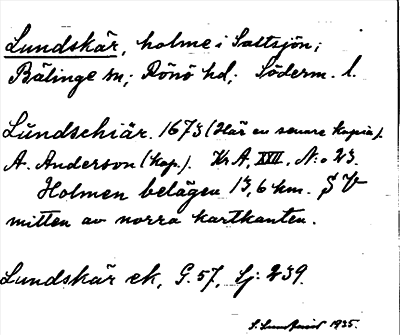 Lundskär, holme i Saltsjön;
Bälinge sn; Rönö hd; Söderm. l.
Lŭndschiär. 1673 (Här en senare kopia).
A. Anderson (kop.). Kr A, XVII, N:o 23.
Holmen belägen 13,6 km. S V
mitten av norra kartkanten.
Lundskär ek, G. 57, Sj: 239.
1935.